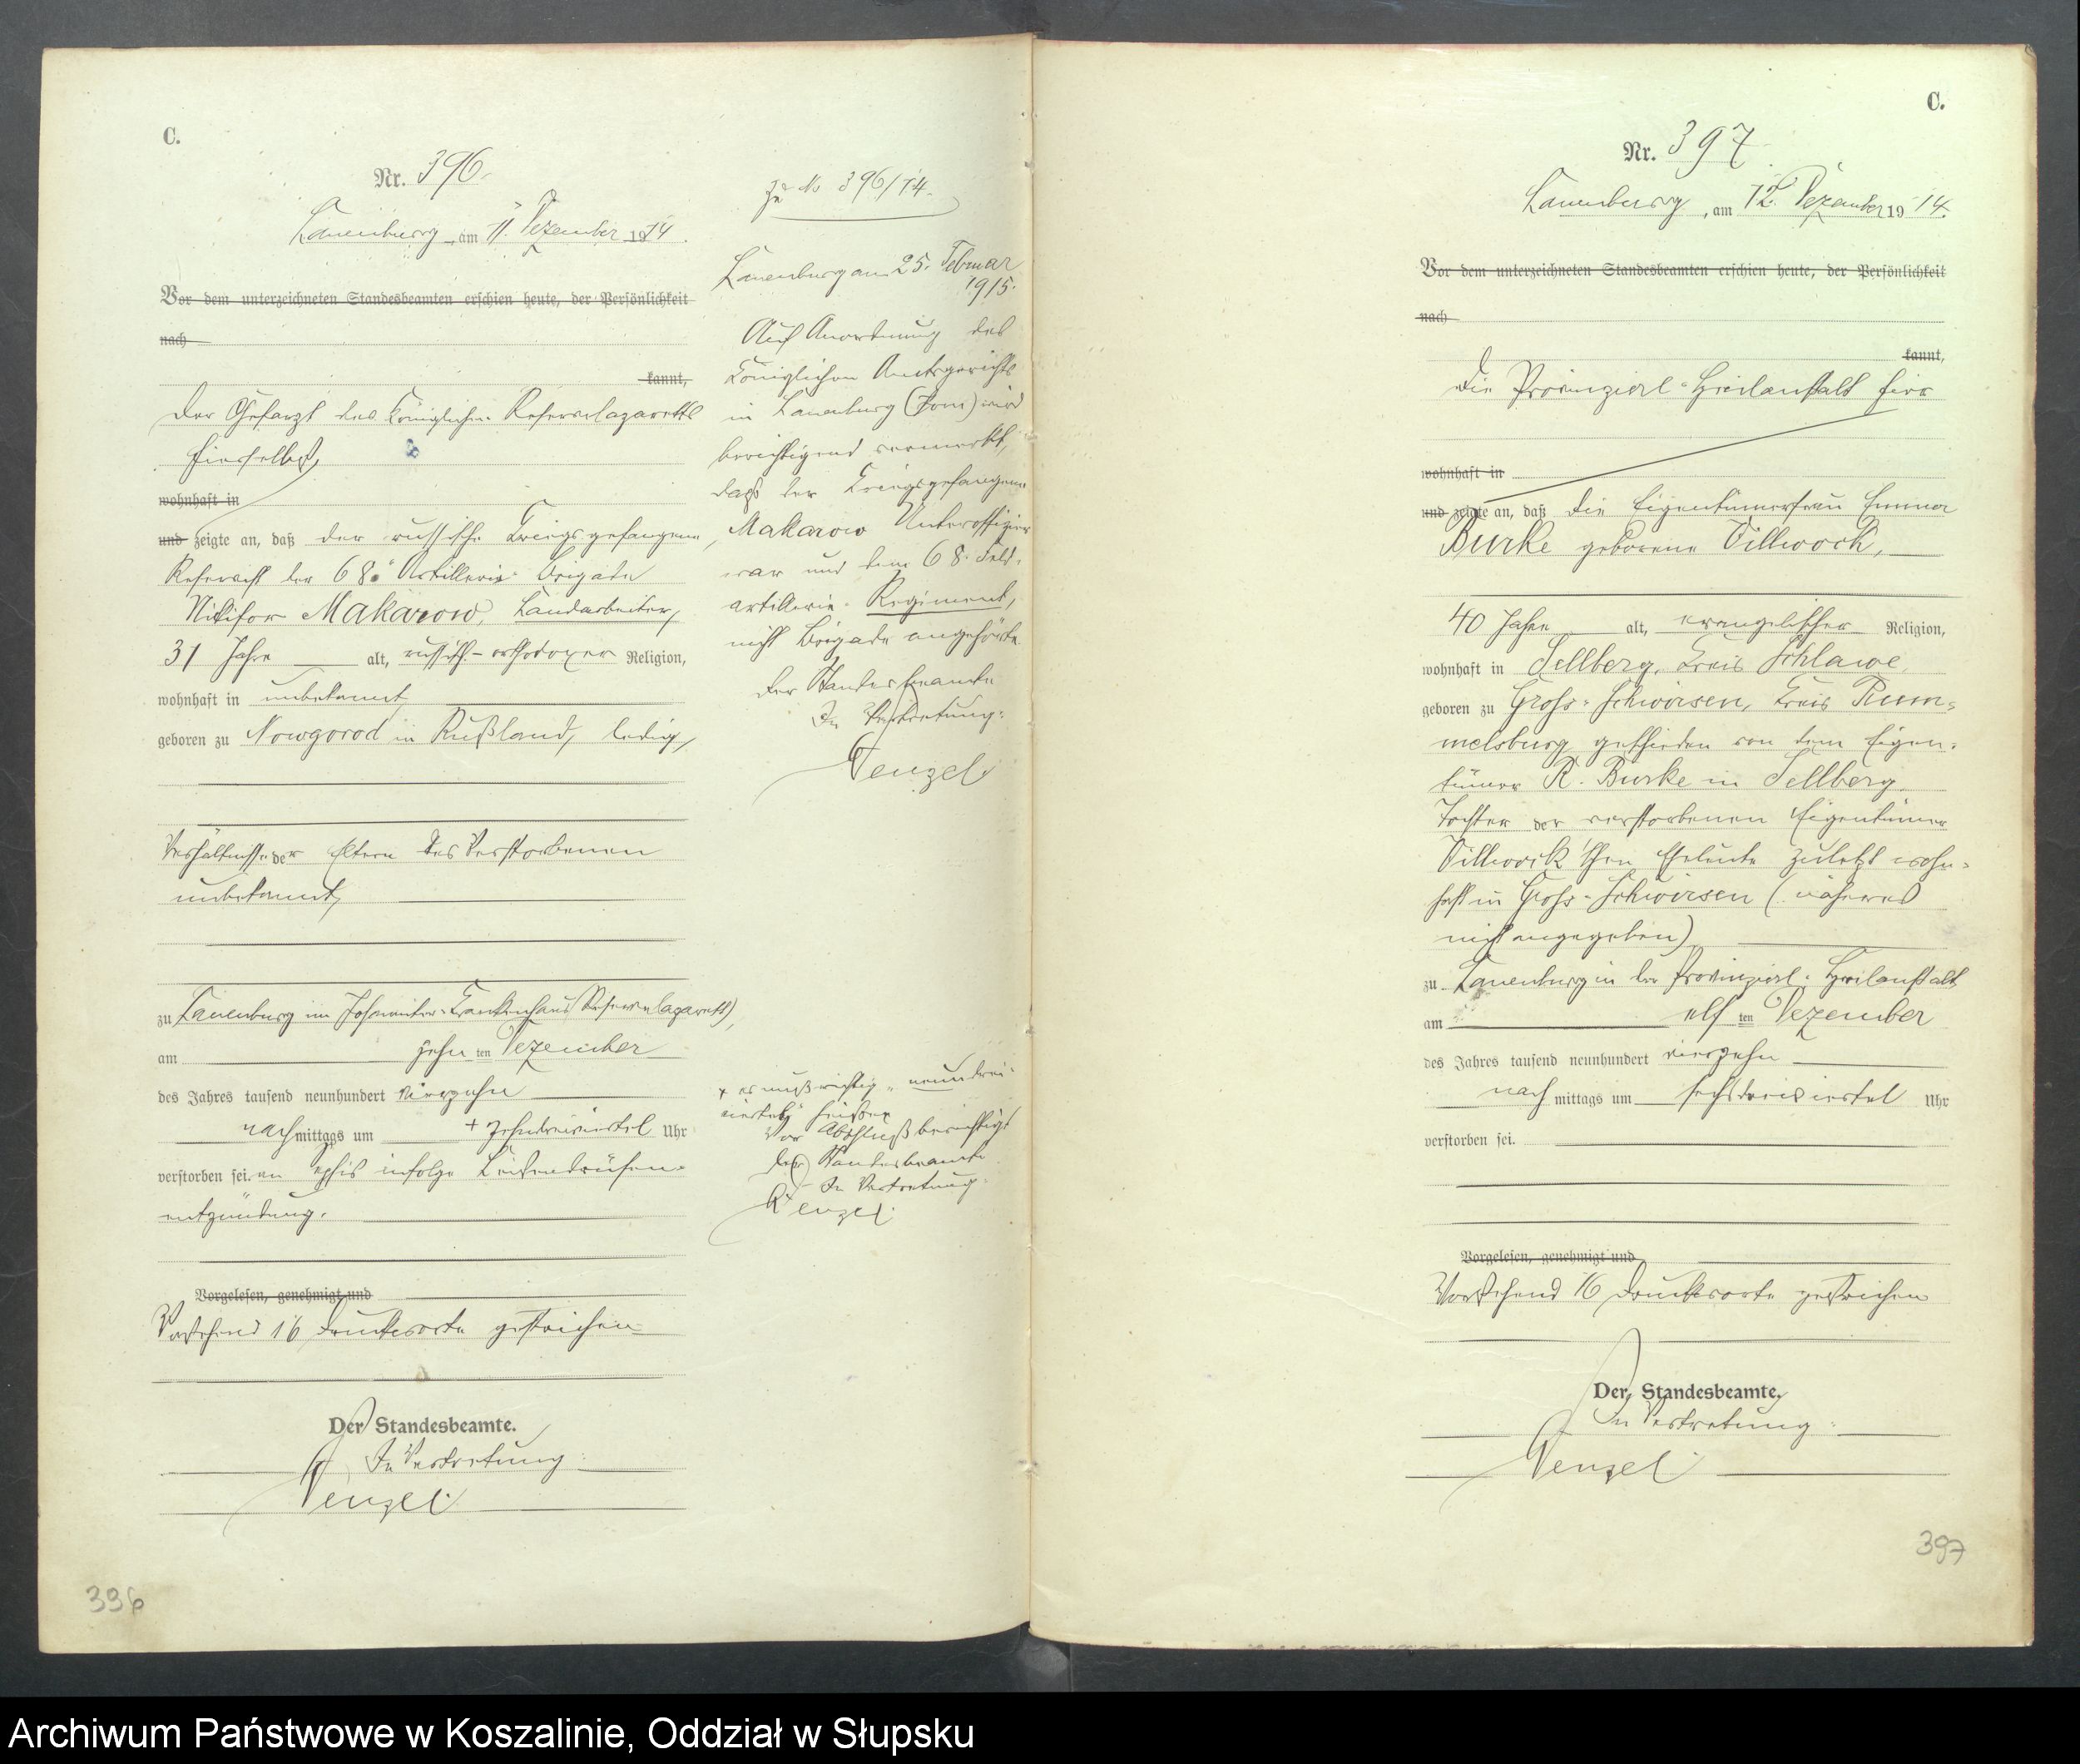 C.
Nr. 396.
Lauenburg, am 11. Dezember 1914.
Vor dem unterzeichneten Standesbeamten erschien heute, der Persönlichkeit
nach
kannt,
Der Chefarzt des Königlichen Reservelazaretts
hierselbst,
wohnhaft in
und zeigte an, daß der russische Kriegsgefangene
Reservist der 68. Artillerie-Brigade
Nikifor Makarow, Landarbeiter,
31 Jahre alt, russisch-orthodoxer Religion,
wohnhaft in unbekannt
geboren zu Nowgorod in Rußland, ledig,
Verhältnisse der Eltern des Verstorbenen
unbekannt,
zu Lauenburg im Johanniter-Krankenhaus (Reservelazarett),
am zehn ten Dezember
des Jahres tausend neunhundert vierzehn
nach mittags um + zehndreiviertel Uhr
verstorben sei. an infolge
entzündung.
Vorgelesen, genehmigt und
Vorstehend 16 Druckworte gestrichen
Der Standesbeamte.
In Vertretung:
Wenzel.
396
Zu No 396/14.
Lauenburg am 25. Februar
1915.
Auf Anordnung des
Königlichen Amtsgerichts
in Lauenburg (Pom) wird
berichtigend vermerkt,
daß der Kriegsgefangene
Makarow Unteroffizier
war und dem 68. Feld-
artillerie-Regiment,
nicht Brigade angehörte.
Der Standesbeamte
In Vertretung:
Wenzel
+ es muß richtig "neundrei-
viertel" heißen
Vor Abschluß berichtigt
Der Standesbeamte
In Vertretung:
Wenzel.
C.
Nr. 397
Lauenburg, am 12. Dezember 1914.
Vor dem unterzeichneten Standesbeamten erschien heute, der Persönlichkeit
nach
kannt,
Die Provinzial-Heilanstalt hier
wohnhaft in
und zeigte an, daß die Eigentümerfrau Emma
Burke geborene Villwock,
40 Jahre alt, evangelischer Religion,
wohnhaft in Sellberg, Kreis Schlawe,
geboren zu Gross-Schwirsen, Kreis Rum-
melsburg, geschieden von dem Eigen-
tümer R. Burke in Sellberg
Tochter der verstorbenen Eigentümer
Villwock'schen Eheleute zuletzt wohn-
haft in Gross-Schwirsen (näheres
nicht angegeben)
zu Lauenburg in der Provinzial-Heilanstalt
am elf ten Dezember
des Jahres tausend neunhundert vierzehn
nach mittags um sechsdreiviertel Uhr
verstorben sei.
Vorgelesen, genehmigt und
Vorstehend 16 Druckworte gestrichen
Der Standesbeamte.
In Vertretung:
Wenzel
397
Archiwum Państwowe w Koszalinie, Oddział w Słupsku